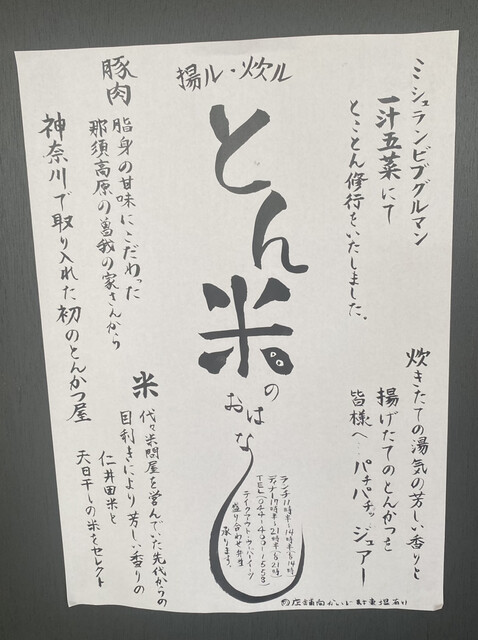 ミシュランビブグルマン
一汁五菜にて
とことん修行をいたしました。
炊きたての湯気の芳しい香りと
揚げたてのとんかつを
皆様へ…パチパチッジュアー
揚ル・炊ル
とん米
のおはなし
ランチ11時半〜14時半(14時)
ディナー17時半〜21時半(21時)
テイクアウト・ウーバーイーツ
盛り合わせ弁当
承ります。
豚肉
脂身の甘味にこだわった
那須高原の曽我の家さんから
神奈川で取り入れた初のとんかつ屋
米
代々米問屋を営んでいた先代からの
目利きにより芳しい香りの
仁井田米と
天日干しの米をセレクト
店舗向かいに駐車場あり